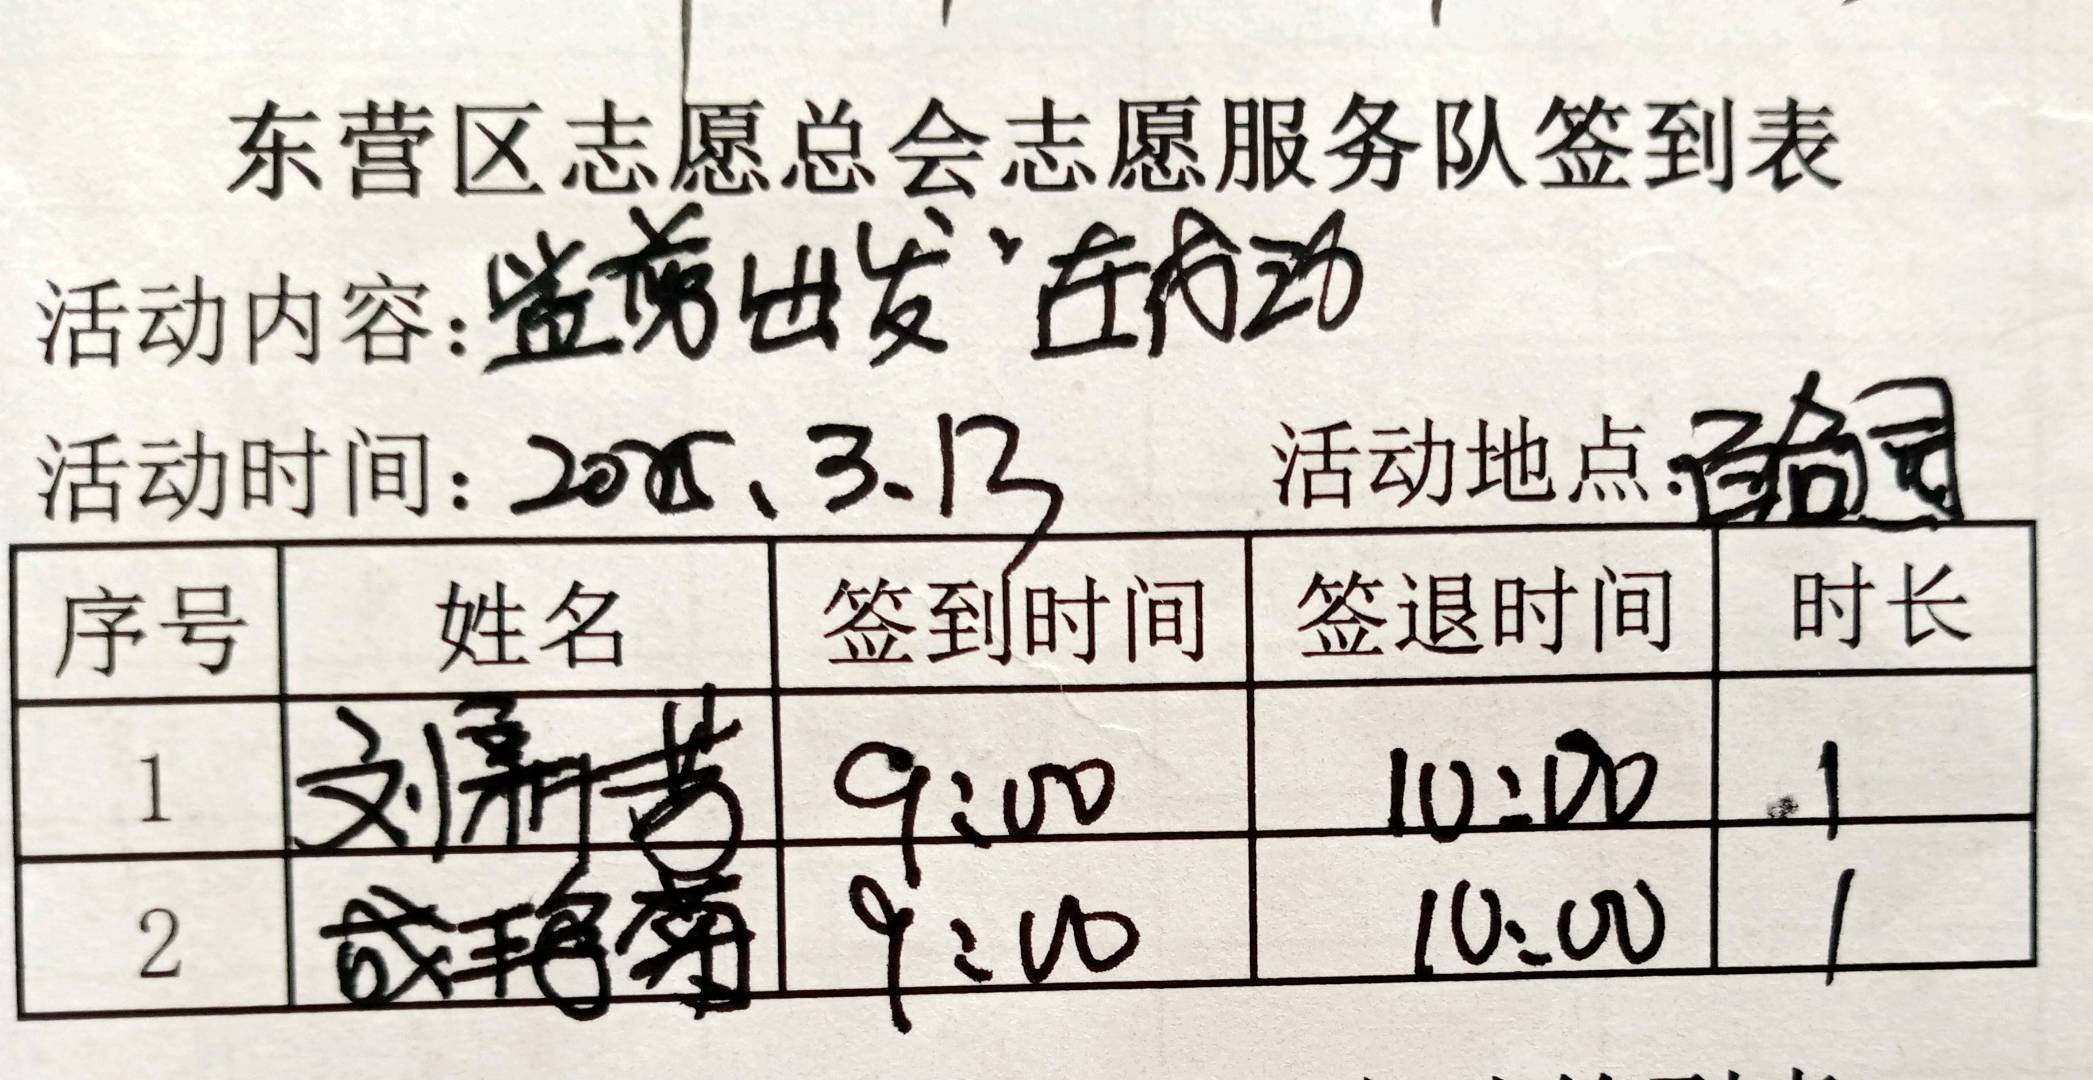 东营区志愿总会志愿服务队签到表
活动内容：监剪出发、在行动
活动时间：2025、3.13 活动地点：百合园
序号 姓名 签到时间 签退时间 时长
1 刘新芳 9:00 10:00 1
2 成艳菊 9:00 10:00 1